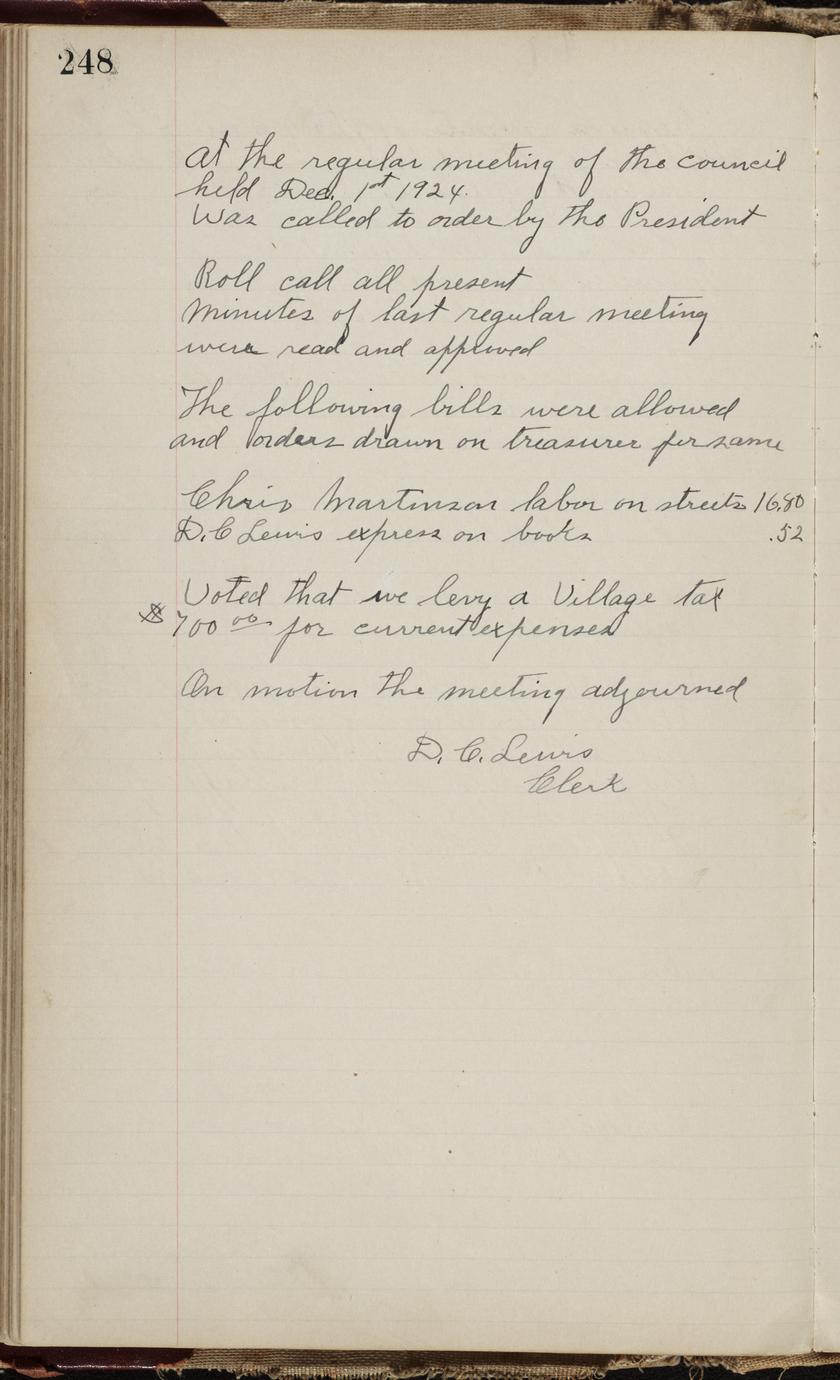 248
At the regular meeting of the council
held Dec. 1st 1924.
Was called to order by the President
Roll call all present
Minutes of last regular meeting
were read and approved
The following bills were allowed
and orders drawn on treasurer for same
Chris Martinson labor on streets 16.80
D. C Lewis express on books .52
Voted that we levy a Village tax
$ 700 00 for current expenses
On motion the meeting adjourned
D. C. Lewis
Clerk